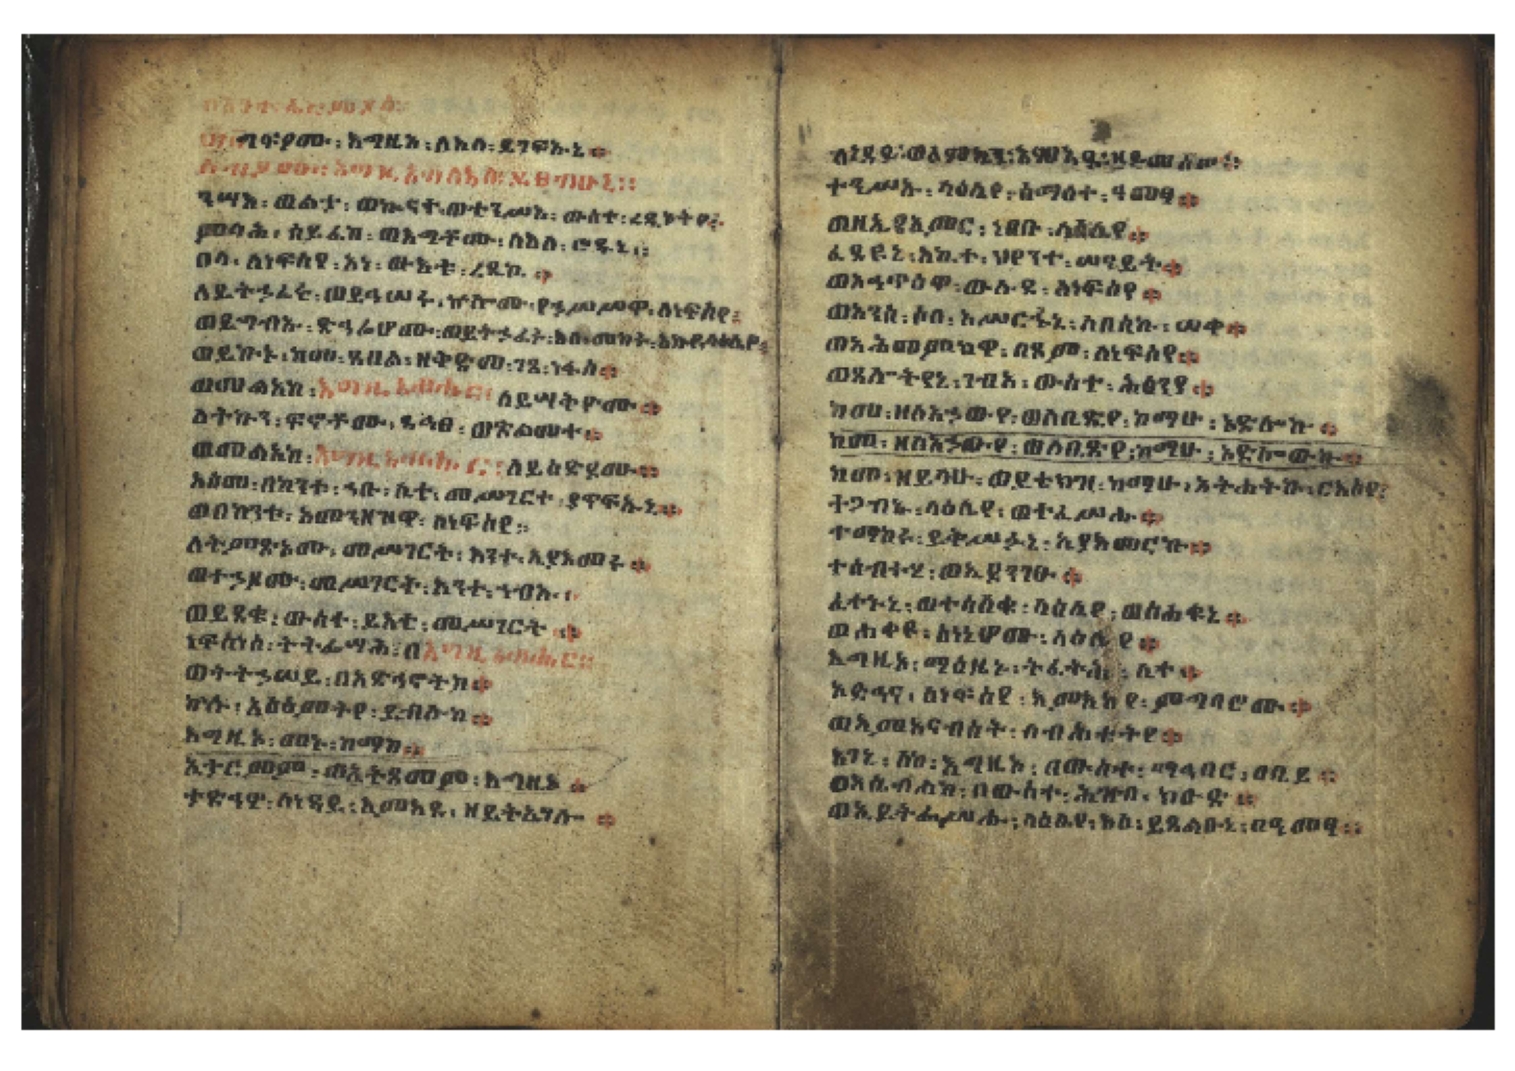 ግፍዖሙ ፡ እግዚኦ ፡ ለእለ ፡ ይገፍኡኒ ።
ንሣእ ፡ ወልታ ፡ ወኲናተ ፡ ወተንሥእ ፡ ውስተ ፡ ረዲኦትየ ።
ምላሕ ፡ ሰይፈከ ፡ ወእግቶሙ ፡ ለእለ ፡ ሮዱኒ ።
በላ ፡ ለነፍስየ ፡ አነ ፡ ውእቱ ፡ ረዲኪ ።
ለይትኃፈሩ ፡ ወይኃሠሩ ፡ ኵሎሙ ፡ የኃሥሥዋ ፡ ለነፍስየ ።
ወይግብኡ ፡ ድኅሬሆሙ ፡ ወይትኃፈሩ ፡ እለ ፡ መከሩ ፡ እኩየ ፡ ላዕሌየ ።
ወይኩኑ ፡ ከመ ፡ ጸበል ፡ ዘቅድመ ፡ ገጸ ፡ ነፋስ ።
ወመልአከ ፡ እግዚአብሔር ፡ ለይሣቅዮሙ ።
ለትኩን ፡ ፍኖቶሙ ፡ ዳኅፀ ፡ ወጽልመተ ።
ወመልአከ ፡ እግዚአብሔር ፡ ለይስድዶሙ ።
እስመ ፡ በከንቱ ፡ ኀቡ ፡ ሊተ ፡ መሥገርተ ፡ ያጥፍኡኒ ።
ወበከንቱ ፡ አመንዘዝዋ ፡ ለነፍስየ ።
ለትምጽኦሙ ፡ መሥገርት ፡ እንተ ፡ ኢያአመሩ ።
ወተኃዞሙ ፡ መሥገርት ፡ እንተ ፡ ኀብኡ ።
ወይደቁ ፡ ውስተ ፡ ይእቲ ፡ መሥገርት ።
ነፍስየሰ ፡ ትትፌሣሕ ፡ በእግዚአብሔር ።
ወትትኃሠይ ፡ በአድኅኖትከ ።
ኵሉ ፡ አዕፅምትየ ፡ ይብሉከ ።
እግዚኦ ፡ መኑ ፡ ከማከ ።
ታድኅኖ ፡ ለነዳይ ፡ እምእደ ፡ ዘይትኤገሎ ።
ለነዳይ ፡ ወለምስኪን ፡ እምእደ ፡ ዘይመስጦ ።
ተንሥኡ ፡ ላዕሌየ ፡ ሰማዕተ ፡ ዓመፃ ።
ወዘኢያአምር ፡ ነበቡ ፡ ላዕሌየ ።
ፈደዩኒ ፡ እኪተ ፡ ህየንተ ፡ ሠናይት ።
ወአኅጥዕዋ ፡ ውሉደ ፡ ለነፍስየ ።
ወአንሰ ፡ ሶበ ፡ አሥርሑኒ ፡ ለበስኩ ፡ ሠቀ ።
ወአሕመምክዋ ፡ በጾም ፡ ለነፍስየ ።
ወጸሎትየኒ ፡ ገብአ ፡ ውስተ ፡ ሕፅንየ ።
ከመ ፡ ዘለእኃውየ ፡ ወለቢጽየ ፡ ከማሁ ፡ አድሎኩ ።
ከመ ፡ ዘይላሁ ፡ ወይቴክዝ ፡ ከማሁ ፡ አትሐትኩ ፡ ርእስየ ።
ተጋብኡ ፡ ላዕሌየ ፡ ወተፈሥሑ ።
ተማከሩ ፡ ይቅሥፉኒ ፡ ኢያአመርኩ ።
ተሰብቱ ፡ ወኢደንገፁ ።
ፈተኑኒ ፡ ወተሳለቁ ፡ ላዕሌየ ፡ ወሰሐቁኒ ።
ወሐቀዩ ፡ ስነኒሆሙ ፡ ላዕሌየ ።
እግዚኦ ፡ ማዕዜኑ ፡ ትፈትሕ ፡ ሊተ ።
አድኅና ፡ ለነፍስየ ፡ እምእከየ ፡ ምግባሮሙ ።
ወእምአናብስት ፡ ለብሕቱትየ ።
እገኒ ፡ ለከ ፡ እግዚኦ ፡ በውስተ ፡ ማኅበር ፡ ዐቢይ ።
ወእሴብሐከ ፡ በውስተ ፡ ሕዝብ ፡ ክቡድ ።
ወኢይትፌሥሑ ፡ ላዕሌየ ፡ እለ ፡ ይጸልኡኒ ፡ በዓመፃ ።